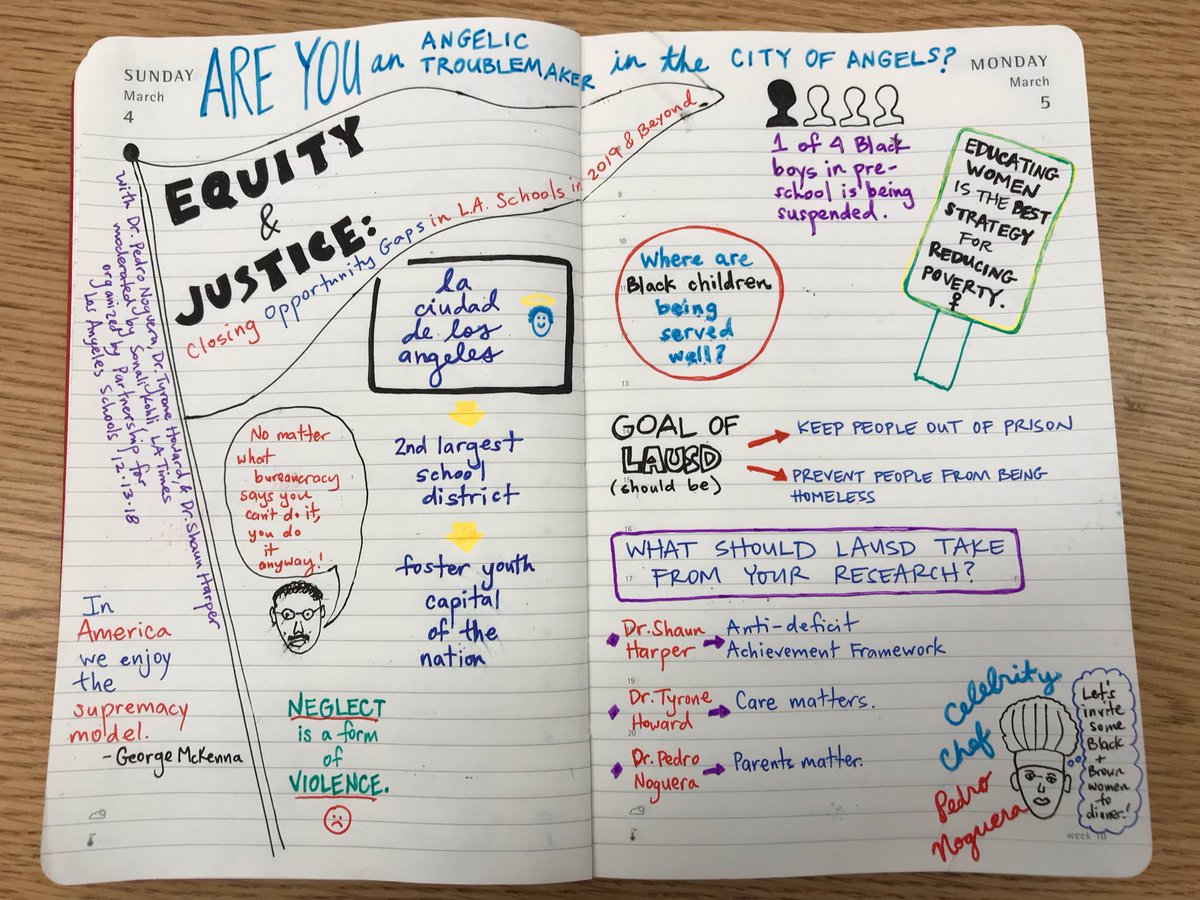 SUNDAY
March
4
ARE YOU an ANGELIC
TROUBLEMAKER
in the CITY OF ANGELS?
MONDAY
March
5
EQUITY
&
JUSTICE:
Closing Opportunity Gaps in L.A. Schools in 2019 & Beyond.
with Dr. Pedro Noguera, Dr. Tyrone Howard, & Dr. Shaun Harper
moderated by Sonali Kohli, LA Times
organized by Partnership for
Los Angeles Schools, 12.13.18
la
ciudad
de los
angeles
2nd largest
school
district
foster youth
capital
of the
nation
No matter
what
bureaucracy
says you
can't do it,
you do
it
anyway!
In
America
we enjoy
the
supremacy
model.
- George McKenna
NEGLECT
is a form
of
VIOLENCE.
1 of 4 Black
boys in pre-
school is being
suspended.
EDUCATING
WOMEN
IS THE BEST
STRATEGY
FOR
REDUCING
POVERTY.
9
10
Where are
Black children
being
served
well?
13
GOAL OF
LAUSD
(should be)
KEEP PEOPLE OUT OF PRISON
PREVENT PEOPLE FROM BEING
HOMELESS
16
WHAT SHOULD LAUSD TAKE
17
FROM YOUR RESEARCH?
Dr. Shaun
Harper
Anti-deficit
Achievement Framework
19
Dr. Tyrone
Howard
Care matters.
20
Dr. Pedro
Noguera
Parents matter.
Celebrity
Chef
Pedro
Noguera
Let's
invite
some
Black
+
Brown
women
to
dinner!
week 10